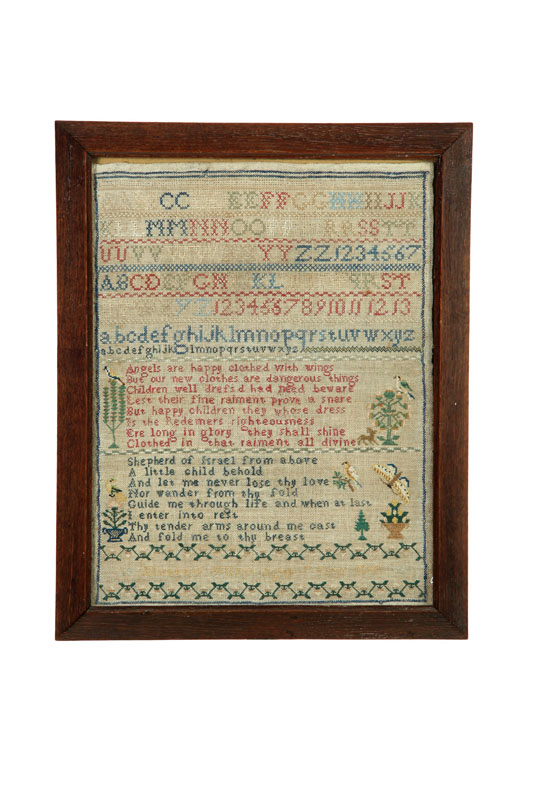 CC EEFFGGHHIIJJK
K MMNNOO RRSSTT
UUVV YYZZ1234667
ABCDEFGH KL QRST
YZ12346678910111213
abcdefghijklmnopqrstuvwxyz
abcdefghijklmnopqrstuvwxyz
Angels are happy clothed with wings
But our new clothes are dangerous things
Children well dresʃd had need beware
Lest their fine raiment prove a snare
But happy children they whose dress
Is the Redemers righteousness
Ere long in glory they shall shine
Clothed in that raiment all divine
Shepherd of Israel from above
A little child behold
And let me never lose thy love
Nor wander from thy fold
Guide me through life and when at last
I enter into reſt
Thy tender arms around me cast
And fold me to thy breast